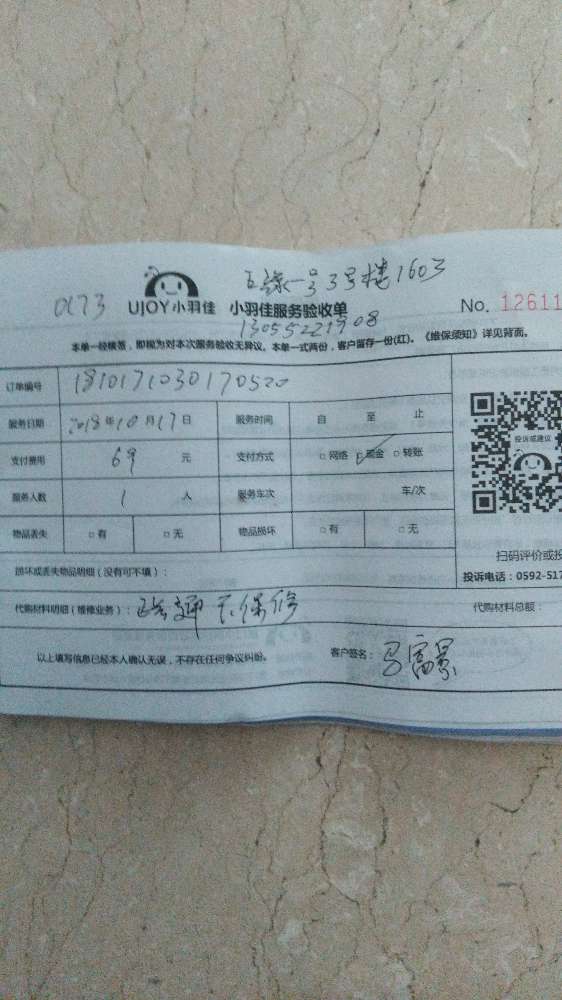 一号3号楼1603
0173 UJOY小羽佳 小羽佳服务验收单 No. 12611
13055221908
本单一经核签，即视为对本次服务验收无异议。本单一式两份，客户留存一份(红)。《维保须知》详见背面。
订单编号 1810171030170520
服务日期 2018年10月17日 服务时间 自 至 止
投诉或建议
支付费用 69 元 支付方式 □网络 □现金 □转账
服务人数 1 人 服务车次 车/次
物品丢失 □有 □无 物品损坏 □有 □无
扫码评价或投
损坏或丢失物品明细（没有可不填）：
投诉电话：0592-517
代购材料明细（维修业务）： 通 不保修 代购材料总额：
以上填写信息已经本人确认无误，不存在任何争议纠纷。 客户签名：